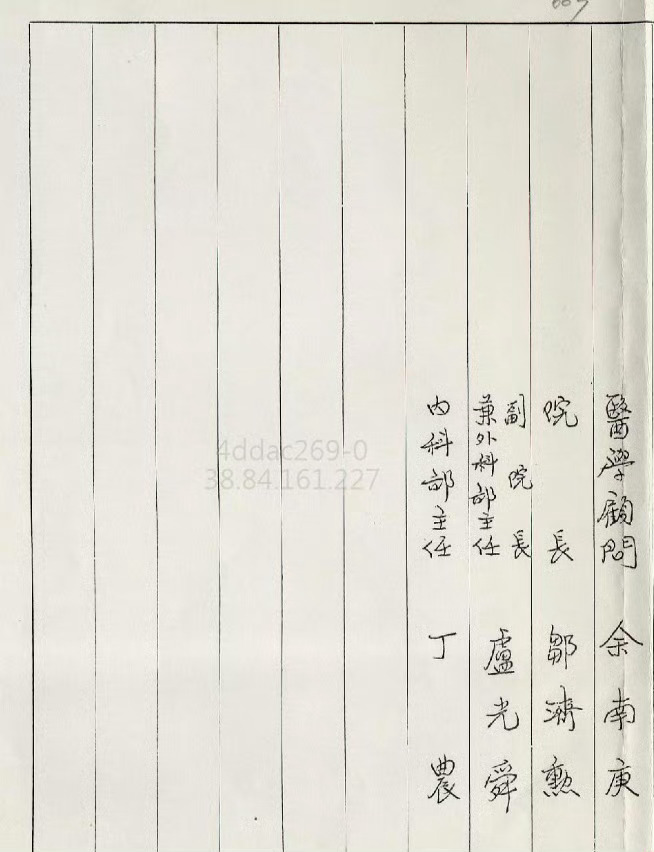 醫學顧問 余南庚
院長 鄒濟勲
副院長
兼外科部主任 盧光舜
內科部主任 丁農
4ddac269-0
38.84.161.227